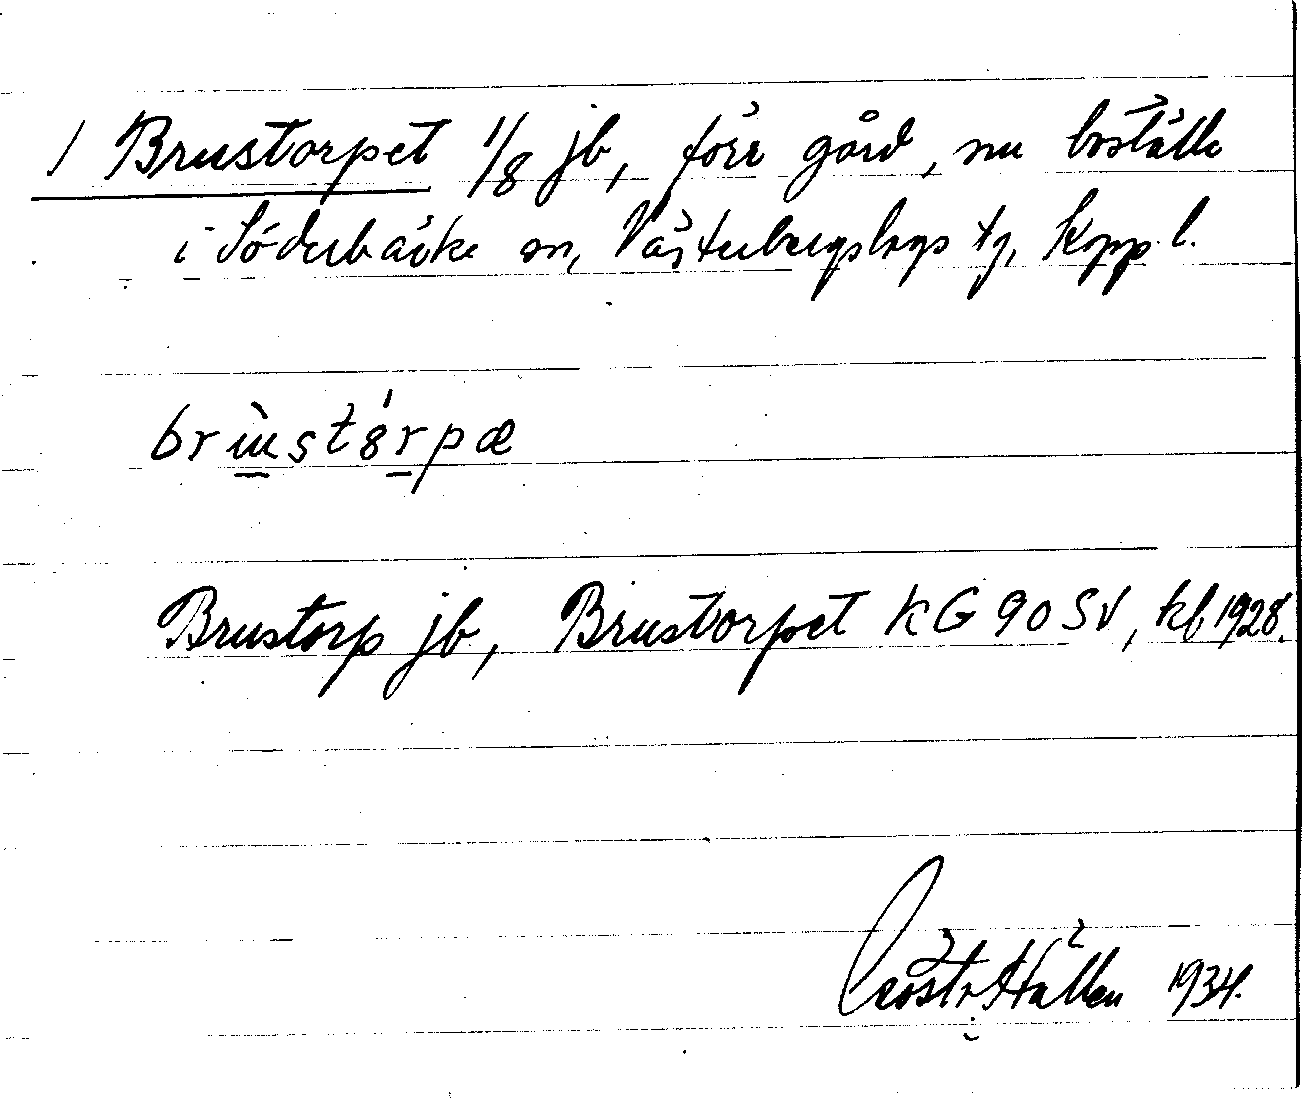 1 Brustorpet 1/8 jb, förr gård, nu boställe
i Söderbärke sn, Västerbergslags tg, Kopp. l.
brùstórpæ
Brustorp jb, Brustorpet KG 90 SV, kb 1928.
1934.